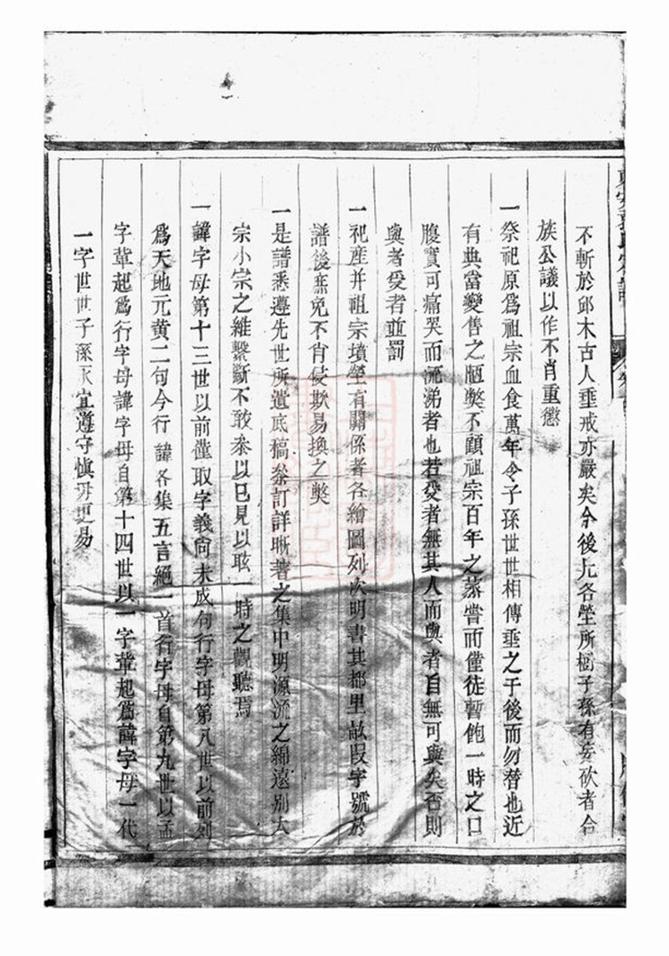 不斬於邱木古人垂戒亦嚴矣今後凡各塋所樹子孫有妄砍者合
族公議以作不肖重懲
一祭祀原爲祖宗血食萬年令子孫世世相傳垂之于後而勿替也近
有典當變售之陋獘不顧祖宗百年之蒸嘗而僅徒暫飽一時之口
腹實可痛哭而流涕者也若受者無其人而與者自無可與矣否則
與者受者並罰
一祀産并祖宗墳塋有關係者各繪圖列次明書其都里畝段字號於
譜後庶免不肖侵欺易換之獘
一是譜悉遵先世所遺底稿叅訂詳晰著之集中明源流之綿遠別大
宗小宗之維繫斷不敢叅以己見以眩一時之觀聽焉
一諱字母第十三世以前僅取字義尚未成句行字母第八世以前列
爲天地元黄二句今行諱各集五言絕一首行字母自第九世以孟
字軰起爲行字母諱字母自第十四世以一字軰起爲諱字母一代
一字世世子孫永宜遵守慎毋更易